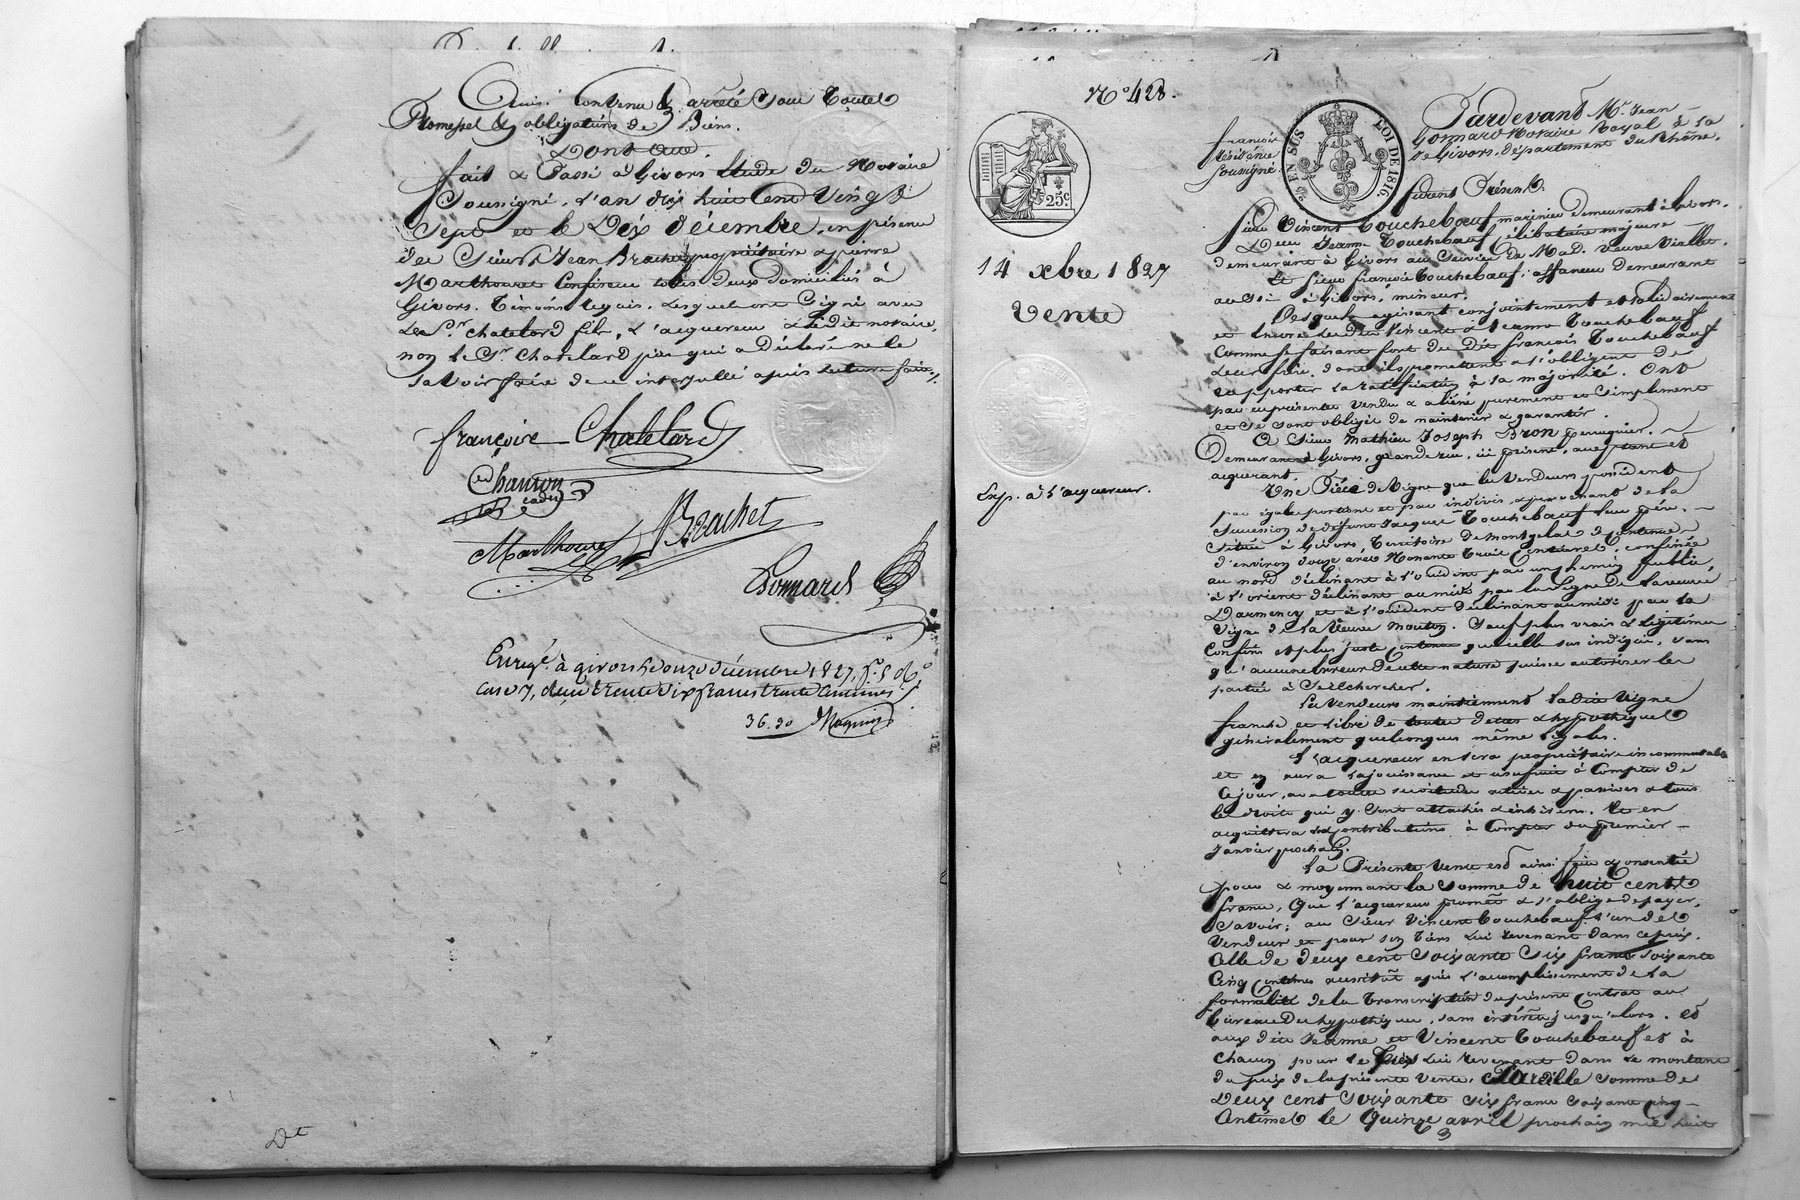 Ainsi Convenu & arrêté sous Toutes
Promesses & obligations de Biens.
Dont acte
fait & Passé à Givors Etude du Notaire
Soussigné, L'an dix huit Cent Vingt
Sept et le Dix décembre, en présence
des Sieurs Jean Brachet propriétaire & pierre
Marthouret Confiseur tous deux Domiciliés à
Givors, Témoins requis, Lesquels ont Signé avec
Les Srs chatelard fils, & l'acquereur & Ledit notaire,
non le Sr chatelard père qui a Déclaré ne le
savoir faire de ce interpellé après lecture faite./.
françoise Chatelard
Chanron
cadet
Marthouret
JBrachet
Gonnard
Enregé. à givors le douze décembre 1827, fo.
Case 7, reçu trente six francs trente Centimes
36.30
Dt
No 428.
25c
14 xbre 1827
Vente
Exp. à l'acquereur.
françois
résidence
soussigné
EN SUS
LOI DE 1816
Pardevant Me. Jean
Gonnard Notaire Royal à la
de Givors, département du Rhône,
furent Présents.
Sieur Vincent Touchebœuf, marinier demeurant à Givors.
Dlle Jeanne Touchebœuf, célibataire majeure
demeurant à Givors au Service de Mad. Veuve Viallet.
et Sieur françois Touchebœuf, affaneur Demeurant
aussi à Givors, mineur.
Lesquels agissant conjointement et solidairement
et encore lesdits Vincent & Jeanne Touchebœuf
Comme se faisant fort du Dit françois Touchebœuf
Leur frère, dont ils promettent & s'obligent de
rapporter la ratification à sa majorité. Ont
par ces présentes vendu & aliéné purement et Simplement
et se sont obligés de maintenir & garantir.
A Sieur Mathieu Joseph Bron perruquier,
Demeurant à Givors, grande rue, ici présent, acceptant et
acquerant.
Une Pièce de Vigne que les Vendeurs possèdent
par égale portions et par indivis, & provenant de la
succession de défunt Jacques Touchebœuf leur père,
Située à Givors, Territoire de Montgelas de Contenue
d'environ douze ares Nonante Trois Centiares, confinée
au nord déclinant à l'occident par un chemin public,
à l'orient déclinant au midi par la Vigne de la veuve
Darmency et à l'occident déclinant au midi par la
Vigne de la Veuve Mouton. Sauf plus vrais & légitimes
Confins et plus juste Contenue que celle sus indiquée, sans
qu'aucune erreur de cette nature puisse autoriser les
parties à Se rechercher.
Les Vendeurs maintiennent ladite Vigne
franche et Libre de toutes dettes & hypothèques
généralement quelconques même légales.
L'acquereur en sera propriétaire incommutable
et en aura la jouissance et usufruit à Compter de
Ce jour, avec toutes servitudes actives & passives & tous
les droits qui y Sont attachés & inhérens. Et en
acquittera les Contributions à Compter du premier
Janvier prochain.
La Présente Vente est ainsi faite & consentie
pour & moyennant la Somme de huit cents
francs, Que l'acquereur promet & s'oblige de payer,
Savoir; au Sieur Vincent Touchebœuf l'un des
Vendeurs et pour son Tiers lui revenant dans ce prix,
Celle de deux cent Soixante Six francs Soixante
Cinq Centimes aussitôt après l'accomplissement de la
formalité de la Transcription du présent Contrat au
bureau Des hypothèques, sans intérêts jusqu'alors. et
aux dits Jeanne et Vincent Touchebœuf et à
Chacun pour le Tiers lui revenant dans le montant
du prix de la présente Vente, Pareille somme de
Deux cent Soixante Six francs Soixante Cinq
Centimes le Quinze avril prochain mil huit